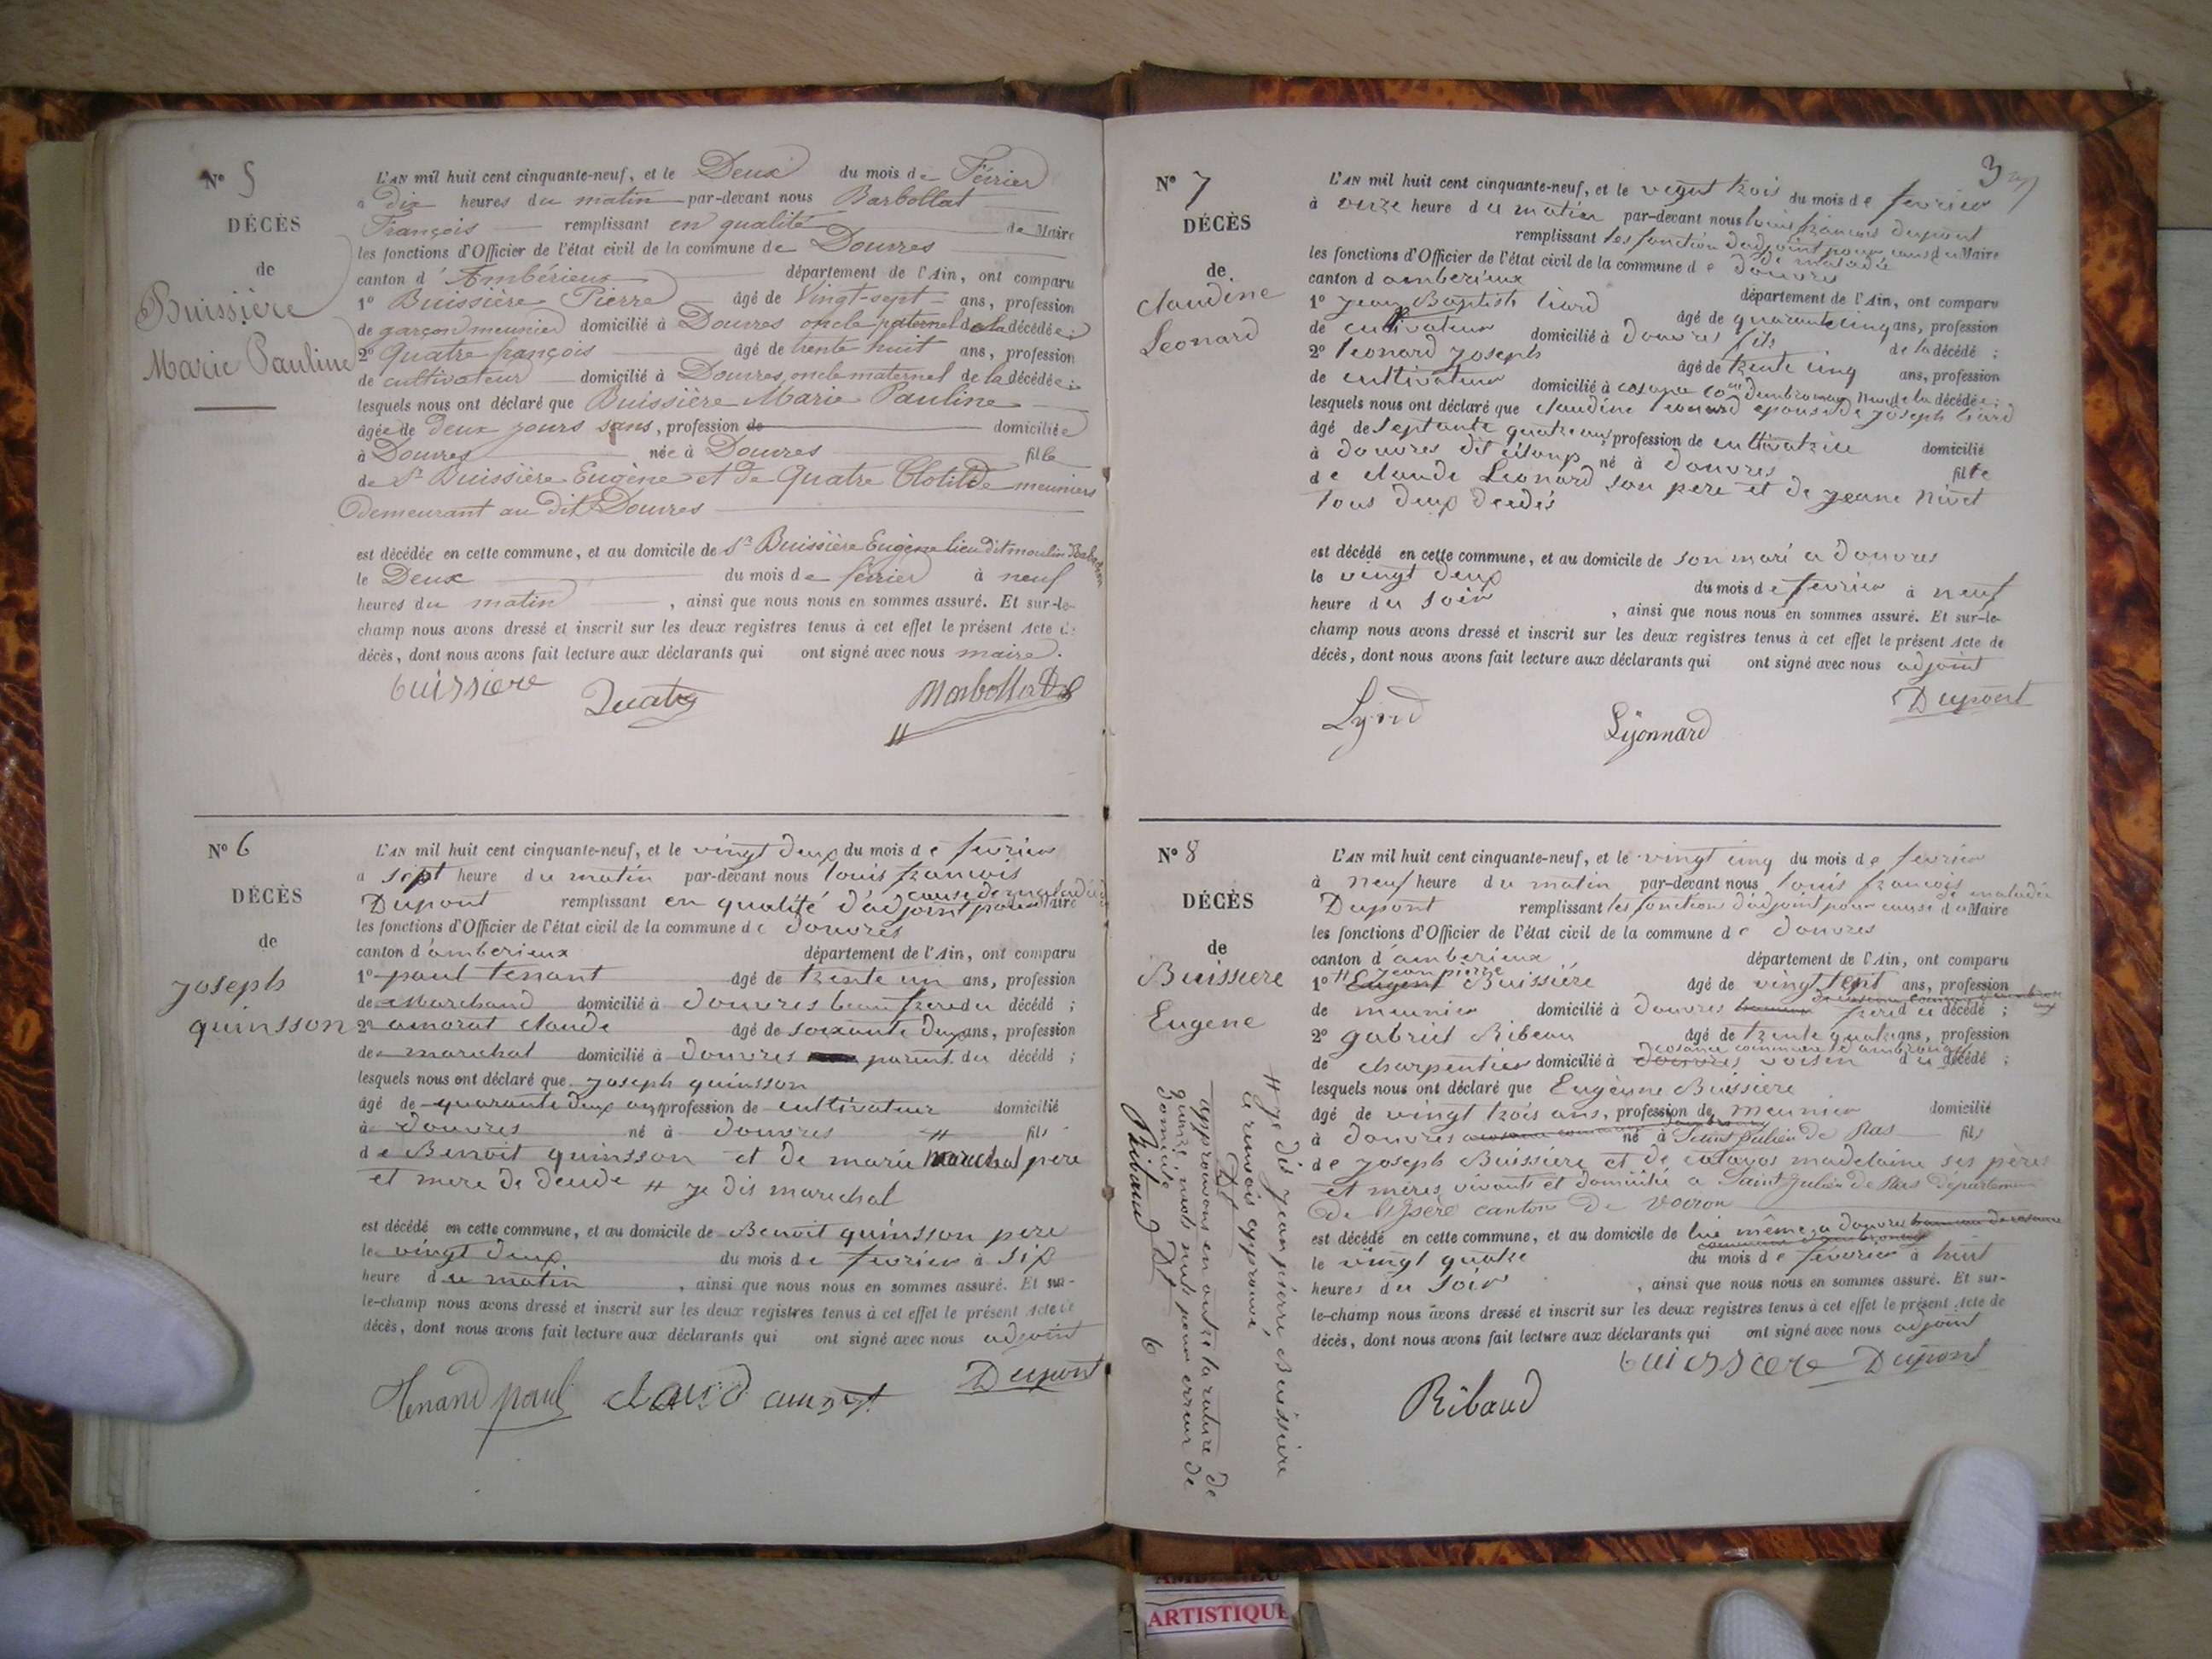 N° 5
DÉCÈS
de
Buissière
Marie Pauline
L'AN mil huit cent cinquante-neuf, et le Deux du mois de Février
à dix heures du matin par-devant nous Barbollat
François remplissant en qualité de Maire
les fonctions d'Officier de l'état civil de la commune de Douvres
canton d'Ambérieux département de l'Ain, ont comparu
1° Buissière Pierre âgé de Vingt-sept ans, profession
de garçon meunier domicilié à Douvres oncle paternel de la décédée ;
2° Quatre françois âgé de trente huit ans, profession
de cultivateur domicilié à Douvres, oncle maternel de la décédée ;
lesquels nous ont déclaré que Buissière Marie Pauline
âgée de deux jours sans, profession de domiciliée
à Douvres née à Douvres fille
de Sr Buissière Eugène et de Quatre Clotilde meuniers
demeurant au dit Douvres
est décédée en cette commune, et au domicile de Sr Buissière Eugène lieu dit moulin
le Deux du mois de février à neuf
heures du matin , ainsi que nous nous en sommes assuré. Et sur-le-
champ nous avons dressé et inscrit sur les deux registres tenus à cet effet le présent Acte de
décès, dont nous avons fait lecture aux déclarants qui ont signé avec nous maire.
buissiere Quatre Barbollat
N° 6
DÉCÈS
de
joseph
quinsson
L'AN mil huit cent cinquante-neuf, et le vingt deux du mois de fevrier
à sept heure du matin par-devant nous louis francois
Dupont remplissant en qualité d'adjoint pour cause de maladie Maire
les fonctions d'Officier de l'état civil de la commune de douvres
canton d'amberieux département de l'Ain, ont comparu
1° paul tenant âgé de trente un ans, profession
de Marchand domicilié à douvres beau frere du décédé ;
2° amorat claude âgé de soixante deux ans, profession
de marechal domicilié à douvres parent du décédé ;
lesquels nous ont déclaré que joseph quinsson
âgé de quarante deux ans profession de cultivateur domicilié
à douvres né à douvres # fils
de Benoit quinsson et de marie marechal pere
et mere de deude # je dis marechal
est décédé en cette commune, et au domicile de Benoit quinsson pere
le vingt deux du mois de fevrier à six
heure du matin , ainsi que nous nous en sommes assuré. Et sur-
le-champ nous avons dressé et inscrit sur les deux registres tenus à cet effet le présent Acte de
décès, dont nous avons fait lecture aux déclarants qui ont signé avec nous adjoint
tenand paul claud Dupont
3
N° 7
DÉCÈS
de
claudine
Leonard
L'AN mil huit cent cinquante-neuf, et le vingt trois du mois de fevrier
à onze heure du matin par-devant nous louis francois dupont
remplissant les fonction d'adjoint pour cause de maladie du Maire
les fonctions d'Officier de l'état civil de la commune de douvres
canton d amberieux département de l'Ain, ont comparu
1° jean Baptiste liard âgé de quarante cinq ans, profession
de cultivateur domicilié à douvres fils de la décédé ;
2° leonard joseph âgé de trente cinq ans, profession
de cultivateur domicilié à cosance com d'ambronay neveu de la décédée ;
lesquels nous ont déclaré que claudine leonard epouse de joseph liard
âgé de septante quatre ans profession de cultivatrice domicilié
à douvres né à douvres fille
de claude Leonard son pere et de jeane nivet
tous deux deédés
est décédé en cette commune, et au domicile de son mari a douvres
le vingt deux du mois de fevrier à neuf
heure du soir , ainsi que nous nous en sommes assuré. Et sur-le-
champ nous avons dressé et inscrit sur les deux registres tenus à cet effet le présent Acte de
décès, dont nous avons fait lecture aux déclarants qui ont signé avec nous adjoint
Lyonnard Dupont
N° 8
DÉCÈS
de
Buissiere
Eugene
L'AN mil huit cent cinquante-neuf, et le vingt cinq du mois de fevrier
à neuf heure du matin par-devant nous louis francois
Dupont remplissant les fonctions d'adjoint pour cause de maladie du Maire
les fonctions d'Officier de l'état civil de la commune de douvres
canton d'amberieux département de l'Ain, ont comparu
1° # Eugene jean pierre Buissiére âgé de vingt sept ans, profession
de meunier domicilié à douvres frere du décédé ;
2° gabriel Ribeau âgé de trente quatre ans, profession
de charpentier domicilié à douvres cosance commune d'ambronay voisin du décédé ;
lesquels nous ont déclaré que Eugènne Buissiere
âgé de vingt trois ans, profession de meunier domicilié
à douvres né à Saint julien de Ras fils
de joseph Buissiere et de madelaine ses pères
et mères vivants et domicilié a Saint julien de Ras département
de l'Isère canton de voiron
est décédé en cette commune, et au domicile de lui même a douvres
le vingt quatre du mois de fevrier à huit
heures du soir , ainsi que nous nous en sommes assuré. Et sur-
le-champ nous avons dressé et inscrit sur les deux registres tenus à cet effet le présent Acte de
décès, dont nous avons fait lecture aux déclarants qui ont signé avec nous adjoint
Ribaud buissiere Dupont
# je dis jean pierre, Buissiere
ce renvois approuvé
approuvons en outre la rature de
quinze mots nuls pour erreur de
domicile
Ribaud
ARTISTIQUE